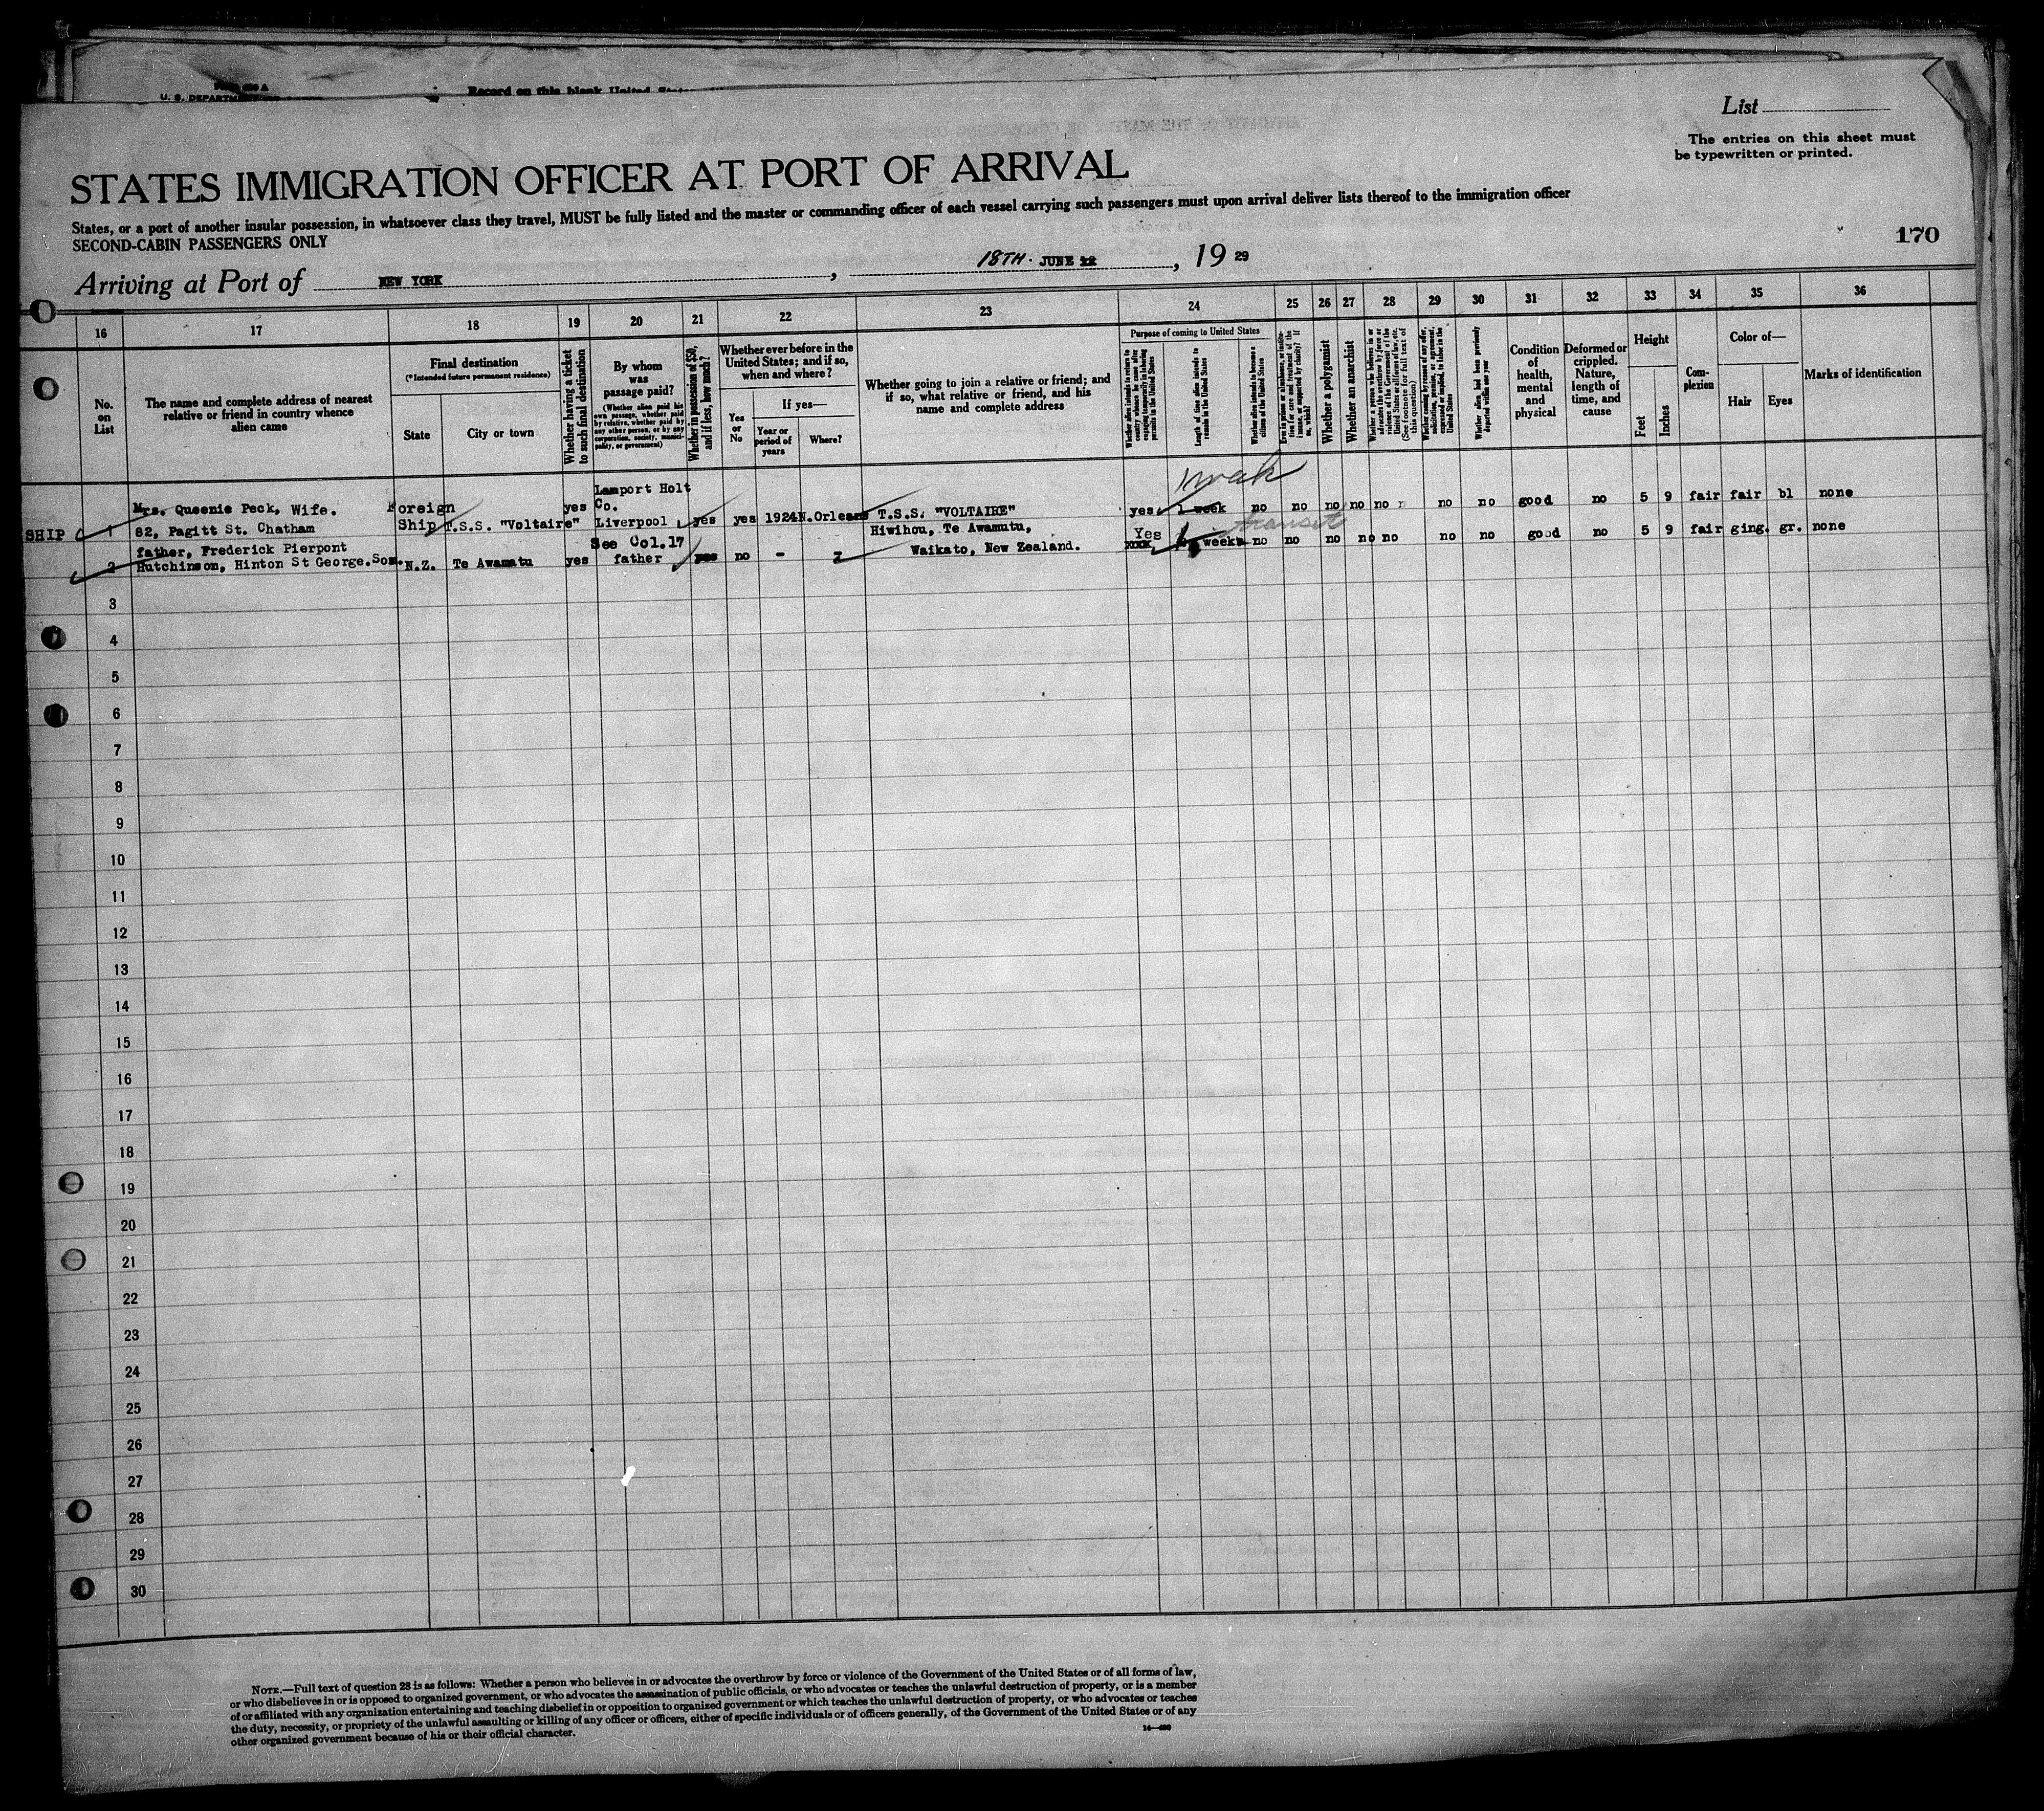 Record on this blank United
U. S. DEPARTM
List
The entries on this sheet must
be typewritten or printed.
STATES IMMIGRATION OFFICER AT PORT OF ARRIVAL
States, or a port of another insular possession, in whatsoever class they travel, MUST be fully listed and the master or commanding officer of each vessel carrying such passengers must upon arrival deliver lists thereof to the immigration officer
SECOND-CABIN PASSENGERS ONLY
170
Arriving at Port of NEW YORK, 18TH. JUNE, 19 29
16 17 18 19 20 21 22 23 24 25 26 27 28 29 30 31 32 33 34 35 36
No. on List
The name and complete address of nearest relative or friend in country whence alien came
Final destination
(*Intended future permanent residence)
State
City or town
Whether having a ticket to such final destination
By whom was passage paid?
(Whether alien paid his own passage, whether paid by relative, whether paid by any other person, or by any corporation, society, municipality, or government)
Whether in possession of $50, and if less, how much?
Whether ever before in the United States; and if so, when and where?
Yes or No
If yes—
Year or period of years
Where?
Whether going to join a relative or friend; and if so, what relative or friend, and his name and complete address
Purpose of coming to United States
Whether alien intends to return to country whence he came after engaging temporarily in laboring pursuits in the United States
Length of time alien intends to remain in the United States
Whether alien intends to become a citizen of the United States
Ever in prison or almshouse, or institution for care and treatment of the insane, or supported by charity? If so, which?
Whether a polygamist
Whether an anarchist
Whether a person who believes in or advocates the overthrow by force or violence of the Government of the United States or all forms of law, etc. (See footnote for full text of this question)
Whether coming by reason of any offer, solicitation, promise, or agreement, expressed or implied, to labor in the United States
Whether alien had been previously deported within one year
Condition of health, mental and physical
Deformed or crippled. Nature, length of time, and cause
Height
Feet
Inches
Complexion
Color of—
Hair
Eyes
Marks of identification
SHIP
1 Mrs. Queenie Peck, Wife.
82, Pagitt St. Chatham
Foreign Ship T.S.S. "Voltaire" yes Lamport Holt Co. Liverpool yes yes 1924 N.Orleans T.S.S. "VOLTAIRE" yes 1 week no no no no no no no good no 5 9 fair fair bl none
2 father, Frederick Pierpont
Hutchinson, Hinton St George. Som. N.Z. Te Awamatu yes See Col.17 father yes no - Hiwihou, Te Awamutu,
Waikato, New Zealand. Yes weeks transit no no no no no no no good no 5 9 fair ging. gr. none
3
4
5
6
7
8
9
10
11
12
13
14
15
16
17
18
19
20
21
22
23
24
25
26
27
28
29
30
NOTE.—Full text of question 28 is as follows: Whether a person who believes in or advocates the overthrow by force or violence of the Government of the United States or of all forms of law,
or who disbelieves in or is opposed to organized government, or who advocates the assassination of public officials, or who advocates or teaches the unlawful destruction of property, or is a member
of or affiliated with any organization entertaining and teaching disbelief in or opposition to organized government or which teaches the unlawful destruction of property, or who advocates or teaches
the duty, necessity, or propriety of the unlawful assaulting or killing of any officer or officers, either of specific individuals or of officers generally, of the Government of the United States or of any
other organized government because of his or their official character.